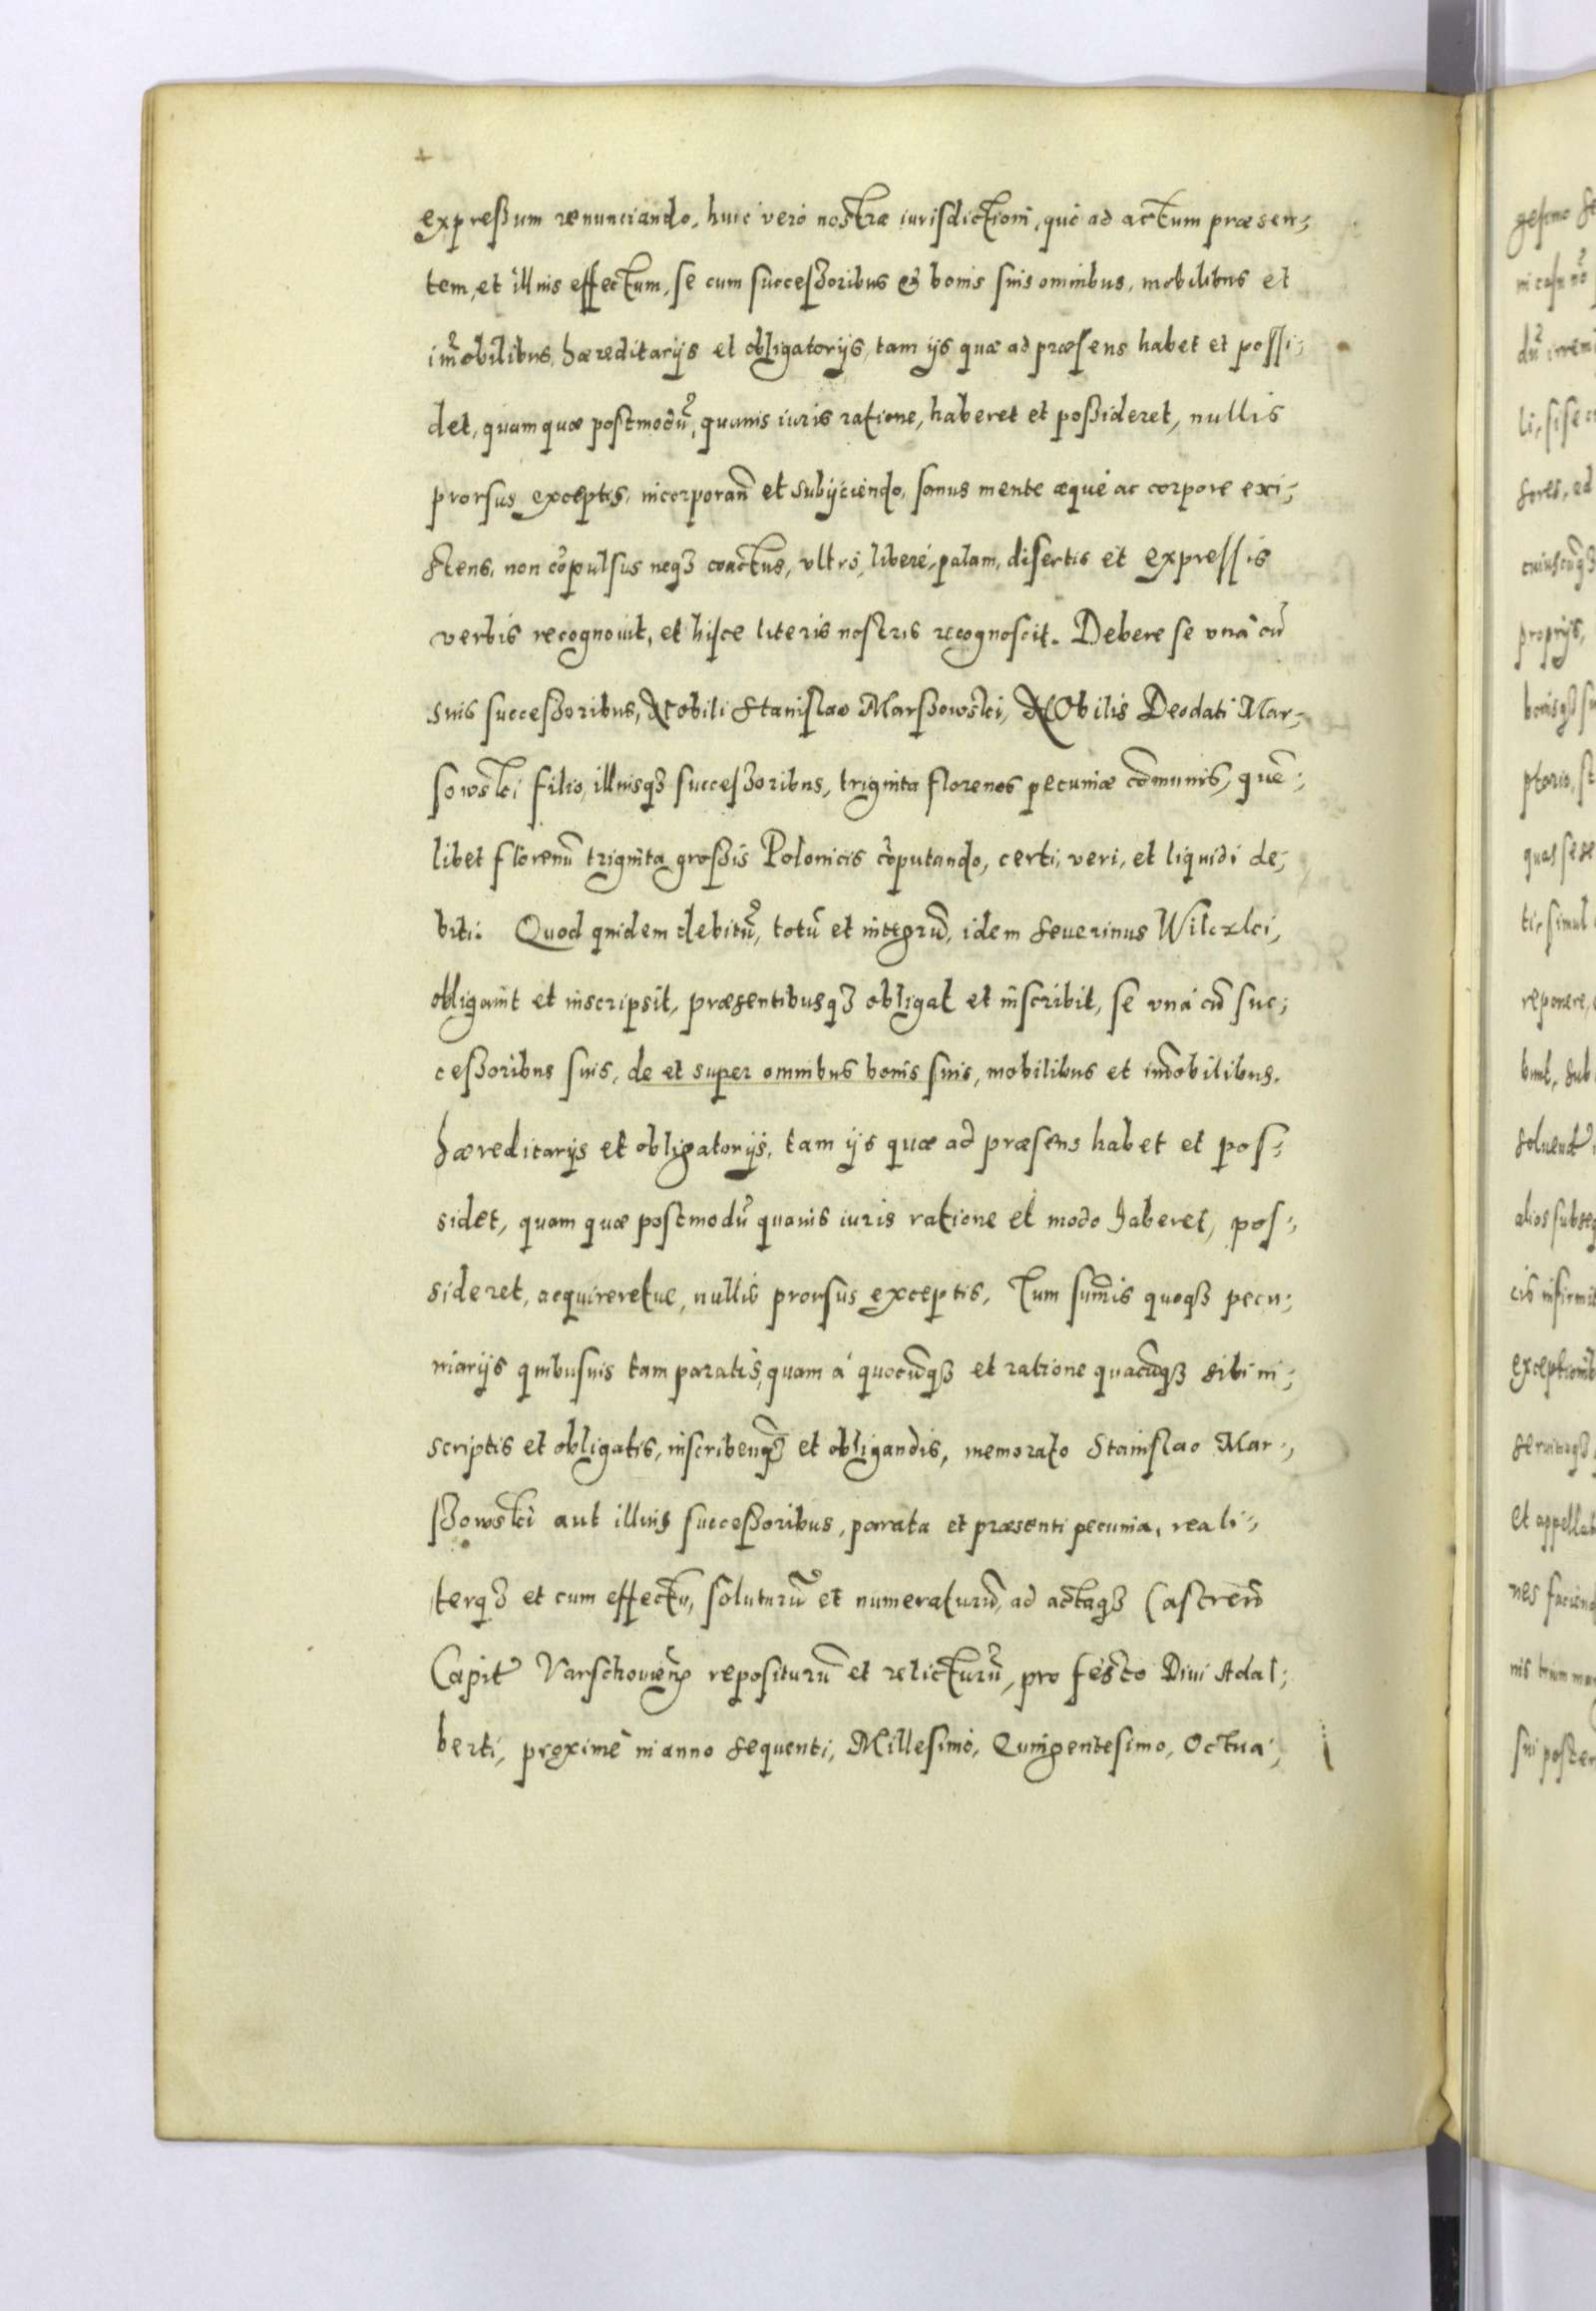 expreßum renunciando, huic verò nostræ iurisdictioni, quò ad actum præsen-
tem, et illius effectum, se cum succeßoribus & bonis suis omnibus, mobilibus et
im̃obilibus, hæreditarijs et obligatorijs, tam ijs quæ ad præsens habet et possi-
det, quam quæ postmodũ, quauis iuris ratione, haberet et poßideret, nullis
prorsus exceptis, incorporañ et subijciendo, sanus mente æquè ac corpore exi-
stens, non cõpulsus neqꝫ coactus, vltrò, liberè, palam, disertis et expressis
verbis recognouit, et hisce literis nostris recognoscit. Debere se vnà cũ
suis succeßoribus, Nobili Stanislao Marßowski, NObilis Deodati Mar-
sowski filio, illiusqꝫ succeßoribus, triginta florenos pecuniæ cõmunis, quẽ-
libet florenũ triginta großis Polonicis cõputando, certi, veri, et liquidi de-
biti. Quod quidem debitũ, totũ et integrũ, idem Seuerinus Wilczki,
obligauit et inscripsit, præsentibusqꝫ obligat et inscribit, se vnà cũ suc-
ceßoribus suis, de et super omnibus bonis suis, mobilibus et im̃obilibus,
hæreditarijs et obligatorijs, tam ijs quæ ad præsens habet et pos-
sidet, quam quæ postmodũ quauis iuris ratione et modo haberet, pos-
sideret, acquireretue, nullis prorsus exceptis, Tum sum̃is quoqꝫ pecu-
niarijs quibusuis tam paratis, quam à quocũqꝫ et ratione quacũqꝫ sibi in-
scriptis et obligatis, inscribenđqꝫ et obligandis, memorato Stanislao Mar-
ßowski aut illius succeßoribus, parata et præsenti pecunia, reali-
terqꝫ et cum effectu, soluturũ et numeraturũ, ad actaqꝫ Castreñ
Capit Varschouieñ repositurũ et relicturũ, pro festo Diui Adal-
berti, proximè in anno sequenti, Millesimo, Quingentesimo, Octua-